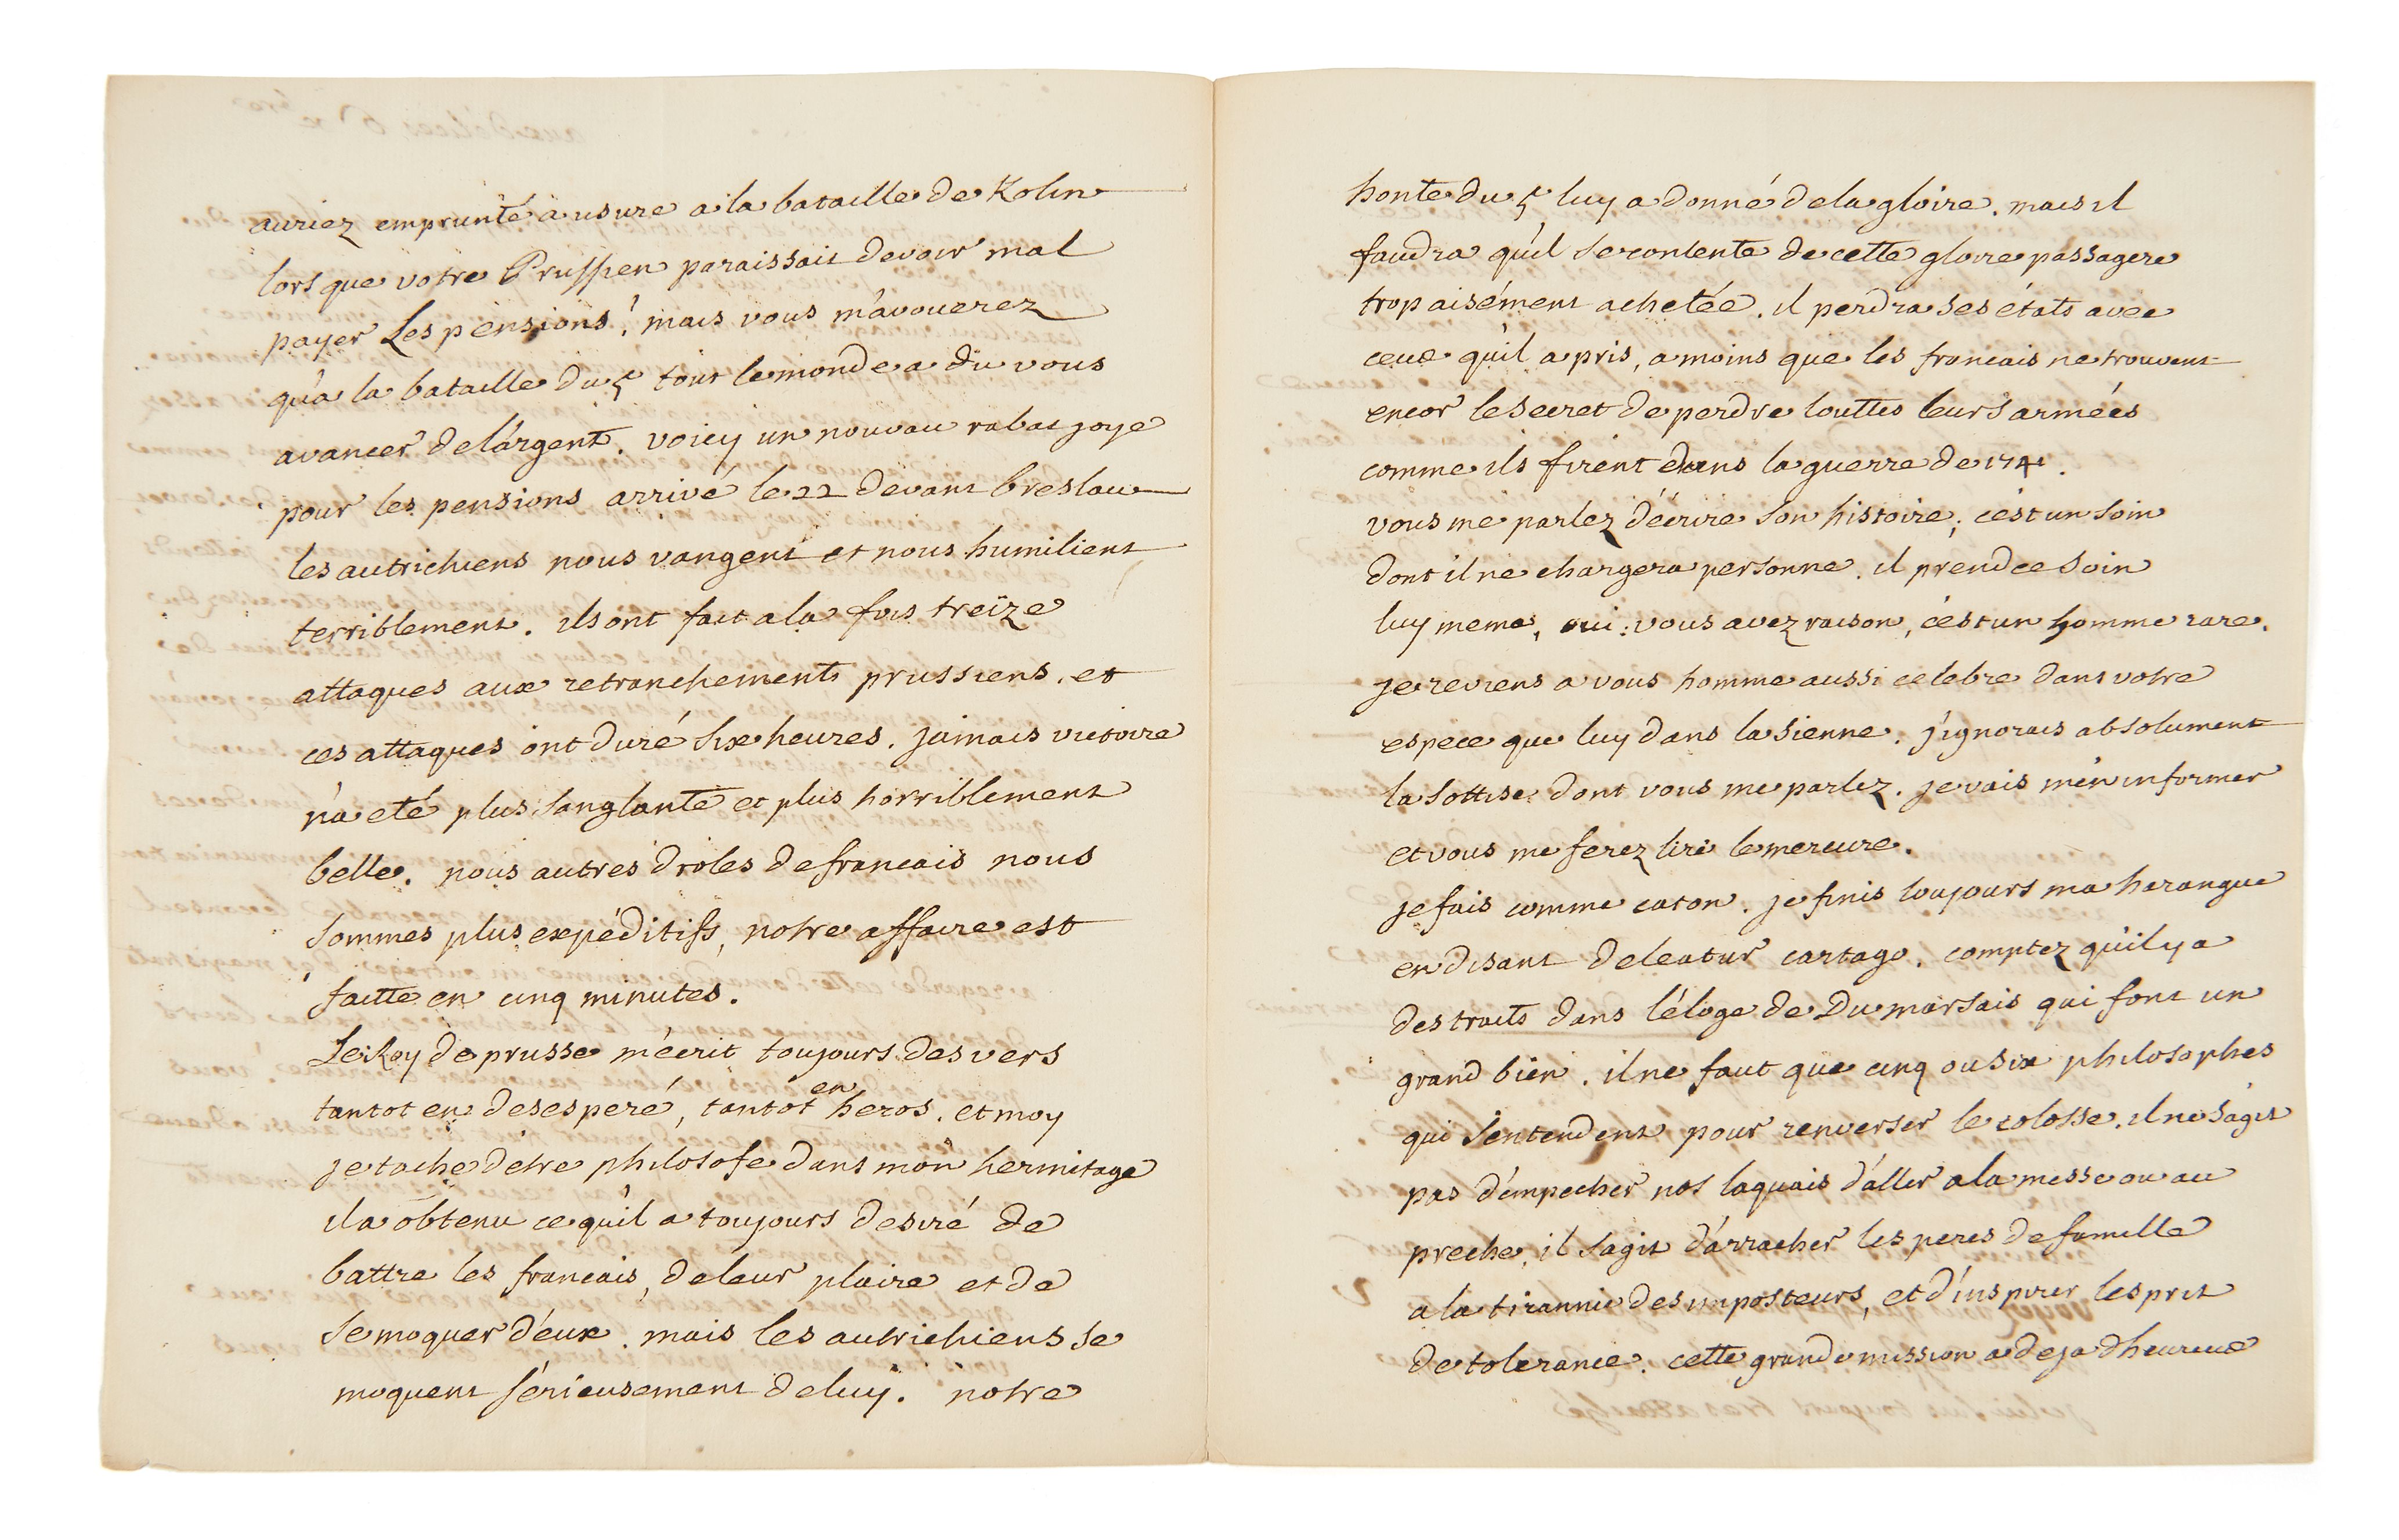 auriez emprunté a usure a la bataille de Kolin
lors que votre Prussien paraissait devoir mal
payer Les pensions! mais vous m'avouerez
qu'a la bataille du 5 tout le monde a du vous
avancer de l'argent. voicy un nouvau rabat joye
pour les pensions arrivé le 22 devant breslau
les autrichiens nous vangent et nous humilient
terriblement. ils ont fait a la fois treize
attaques aux retranchements prussiens, et
ces attaques ont duré six heures. jamais victoire
n'a eté plus sanglante et plus horriblement
belle. nous autres droles de francais nous
sommes plus expéditifs, notre affaire est
faitte en cinq minutes.
Le Roy de prusse m'écrit toujours des vers
tantot en desesperé, tantot en heros. et moy
je tache d'etre philosofe dans mon hermitage
il a obtenu ce qu'il a toujours desiré de
battre les francais, de leur plaire et de
se moquer d'eux. mais les autrichiens se
moquent sérieusement de luy. notre
honte du 5 luy a donné de la gloire. mais il
faudra qu'il se contente de cette gloire passagere
trop aisément achetée. il perdra ses états avec
ceux qu'il a pris, a moins que les francais ne trouvent
encor le secret de perdre touttes leurs armées
comme ils firent dans la guerre de 1741.
vous me parlez d'écrire son histoire; c'est un soin
dont il ne chargera personne. il prend ce soin
luy meme, oui: vous avez raison, c'est un homme rare.
je reviens a vous homme aussi celebre dans votre
espece que luy dans la sienne. j'ignorais absolument
la sottise dont vous me parlez. je vais m'en informer
et vous me ferez lire le mercure.
je fais comme caton. je finis toujours ma harangue
en disant deleatur cartago. comptez qu'il y a
des traits dans l'éloge de Du marsais qui font un
grand bien. il ne faut que cinq ou six philosophes
qui s'entendent pour renverser le colosse. il ne s'agit
pas d'empecher nos laquais d'aller a la messe ou au
preche; il s'agit d'arracher les peres de famille
a la tirannie des imposteurs, et d'inspirer l'esprit
de tolerance. cette grande mission a deja d'heureux